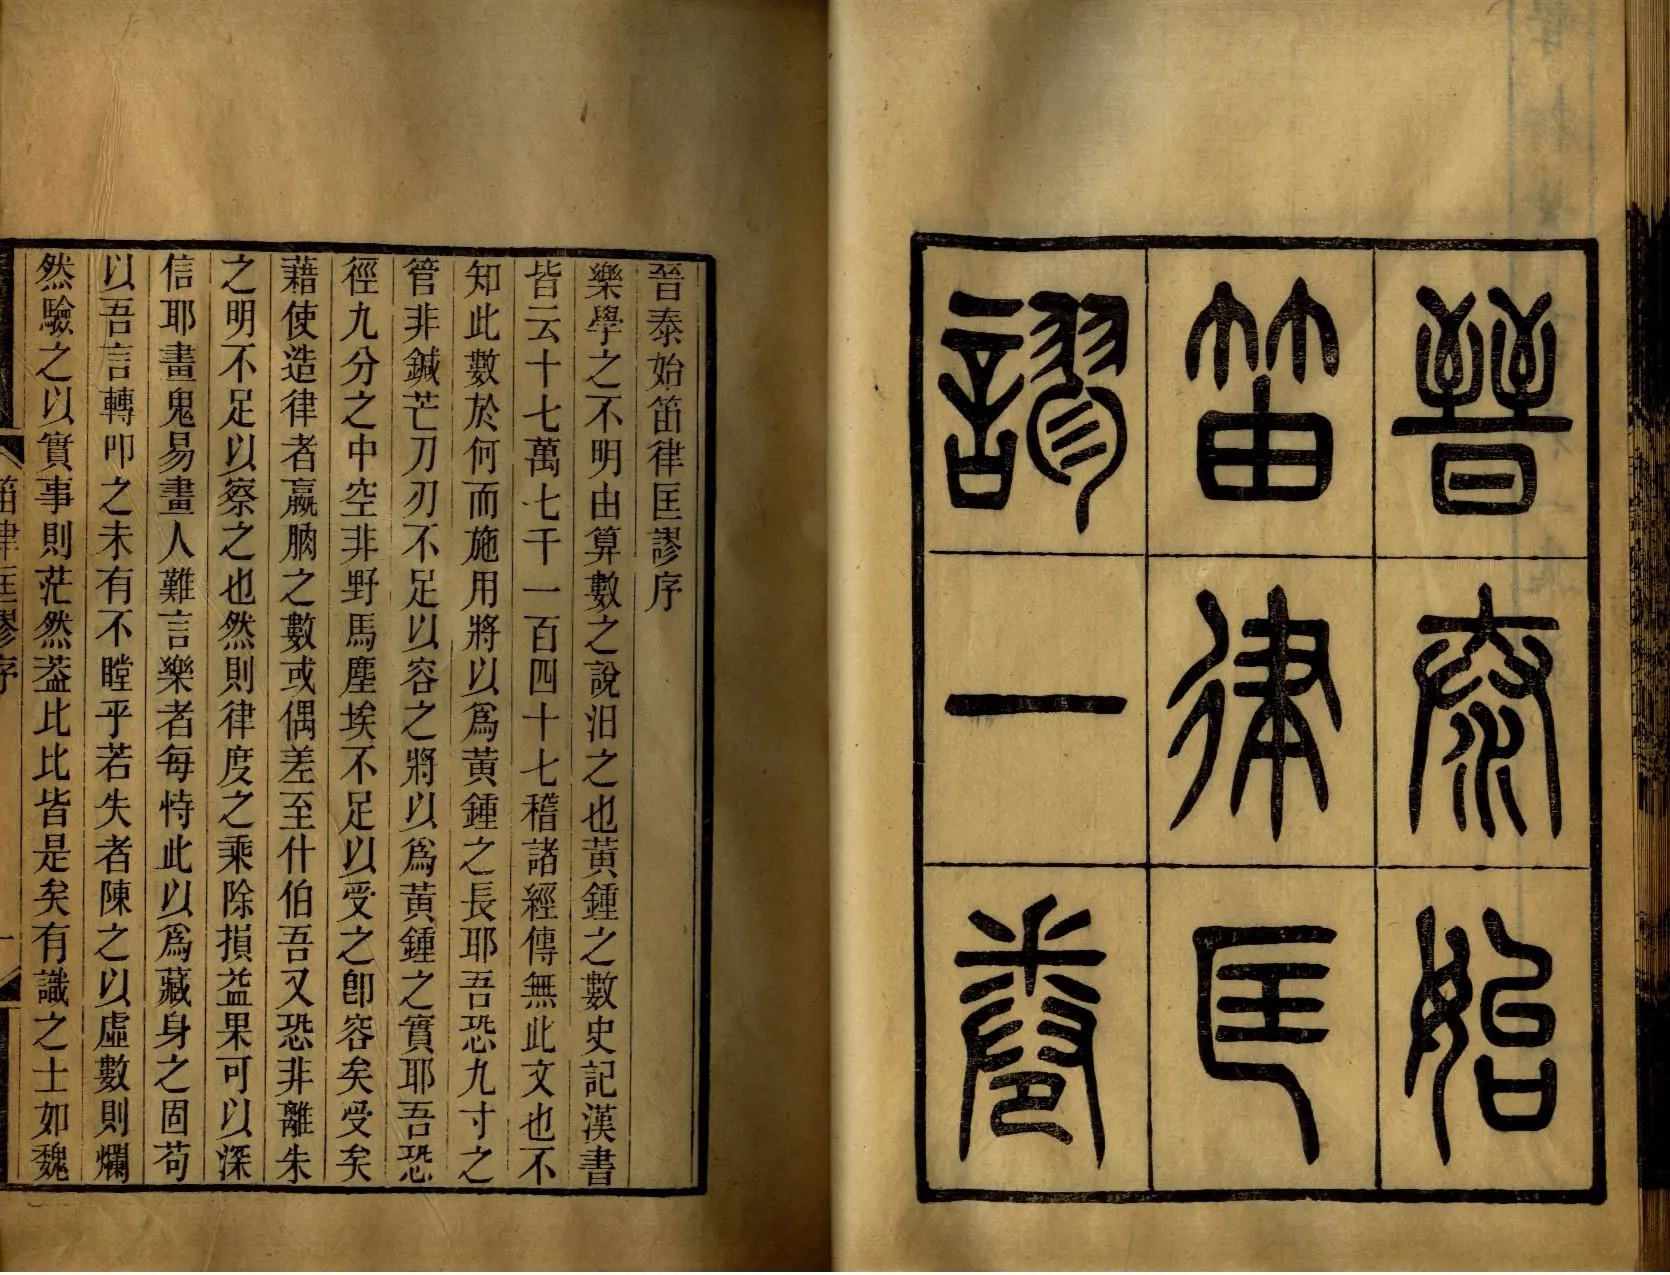 晉泰始
笛律匡
謬一卷
晉泰始笛律匡謬序
樂學之不明由算數之說汨之也黃鍾之數史記漢書
皆云十七萬七千一百四十七稽諸經傳無此文也不
知此數於何而施用將以爲黃鍾之長耶吾恐九寸之
管非鍼芒刀刃不足以容之將以爲黃鍾之實耶吾恐
徑九分之中空非野馬塵埃不足以受之卽容矣受矣
藉使造律者嬴朒之數或偶差至什伯吾又恐非離朱
之明不足以察之也然則律度之乘除損益果可以深
信耶畫鬼易畫人難言樂者每恃此以爲藏身之固苟
以吾言轉叩之未有不瞠乎若失者陳之以虛數則爛
然驗之以實事則茫然葢比比皆是矣有識之士如魏
笛律匡謬序
一